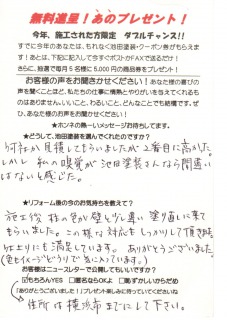 無料進呈！あのプレゼント！
今年、施工された方限定　ダブルチャンス!!
すでに今年のあなたは、もれなく池田塗装・クーポン券がもらえま
す！あとは、下記に記入して今すぐポストかFAXで送るだけ！
さらに、抽選で毎月5名様に5,000円の商品券をプレゼント！
お客様の声をお聞きさせください！あなた様の喜びの
声を聞くことほど、私たちの仕事に情熱とやりがいを与えてくれるも
のはありません。いいこと、わるいこと、どんなことでも結構です。ぜ
ひ、あなた様のお声をお聞かせください！
★ホンネの熱ーいメッセージお待ちしてます。
★どうして、池田塗装を選んでくれたのですか？
見積してもらいましたが 2番目に高かった。
しかし 私の嗅覚が池田塗装さんなら間違い
はないと感じた。
★リフォーム後の今のお気持ちを教えて？
施工後 柱の色が壁と少し違い 塗り直しに来て
もらいました。この様な対応もしっかりして頂き
仕上りにも満足しています。ありがとうございました
(色もイメージどうりで気に入っています。)
お客様はニュースレターで公開してもいいですか？
☑もちろんYES　□匿名ならOKよ　□恥ずかしいからだめ
「ありがとうございました！」プレゼント楽しみに待っていてくださいね
住所は横浜市までにして下さい。